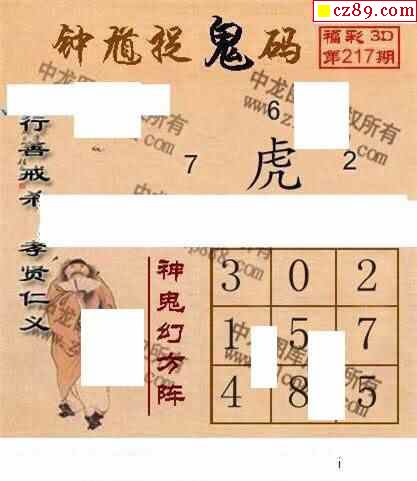 cz89.com
钟馗捉鬼码
福彩3D
第217期
6
7
虎
2
行善戒杀
孝贤仁义
神鬼幻方阵
3 0 2
1 5 7
4 8 5
i